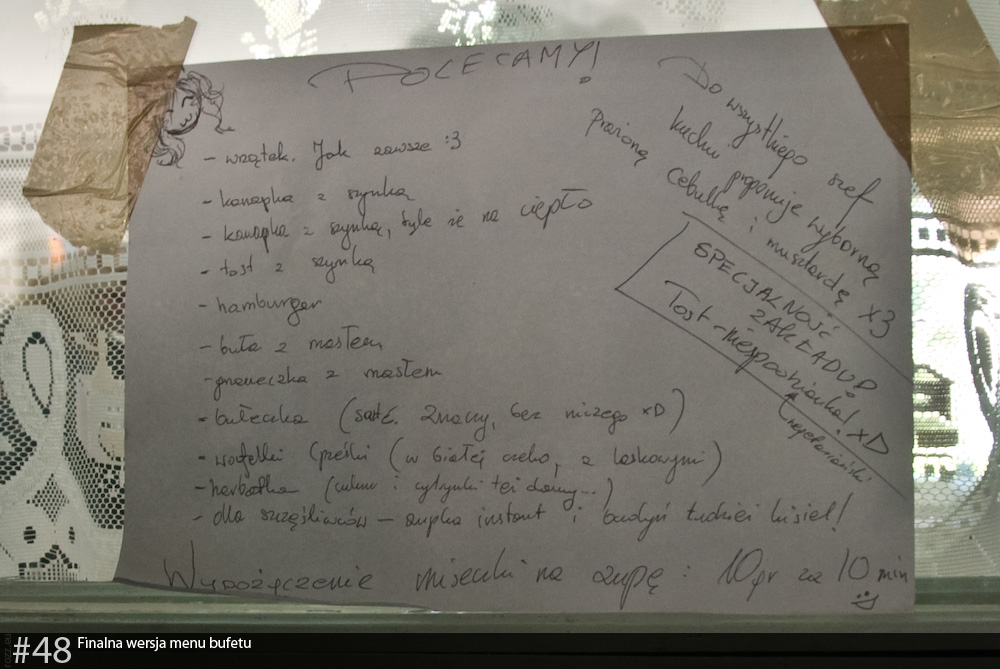 POLECAMY!
- wrzątek. Jak zawsze :3
- kanapka z szynką
- kanapka z szynką, tyle że na ciepło
- tost z szynką
- hamburger
- buła z masłem
- grzaneczka z masłem
- bułeczka ( znany, bez niczego xD)
- wafelki Grześki (w białej czeko, z laskowymi)
- herbatka (cukru i cytrynki też damy...)
- dla szczęśliwców - zupka instant i budyń tudzież kisiel!
Wypożyczenie miseczki na zupę : 10gr za 10 min
Do wszystkiego szef
kuchni proponuje wyborną
prażoną cebulkę i musztardę x3
SPECJALNOŚĆ
ZAKŁADU:
Tost-niespodzianka! xD
wegetariański
#48 Finalna wersja menu bufetu